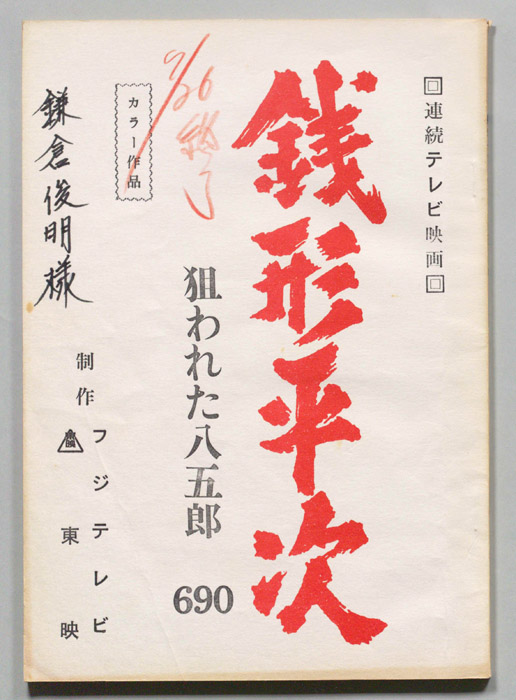 連続テレビ映画
銭形平次
狙われた八五郎
690
カラー作品
26 終了
鎌倉俊明様
制作
フジテレビ
東映